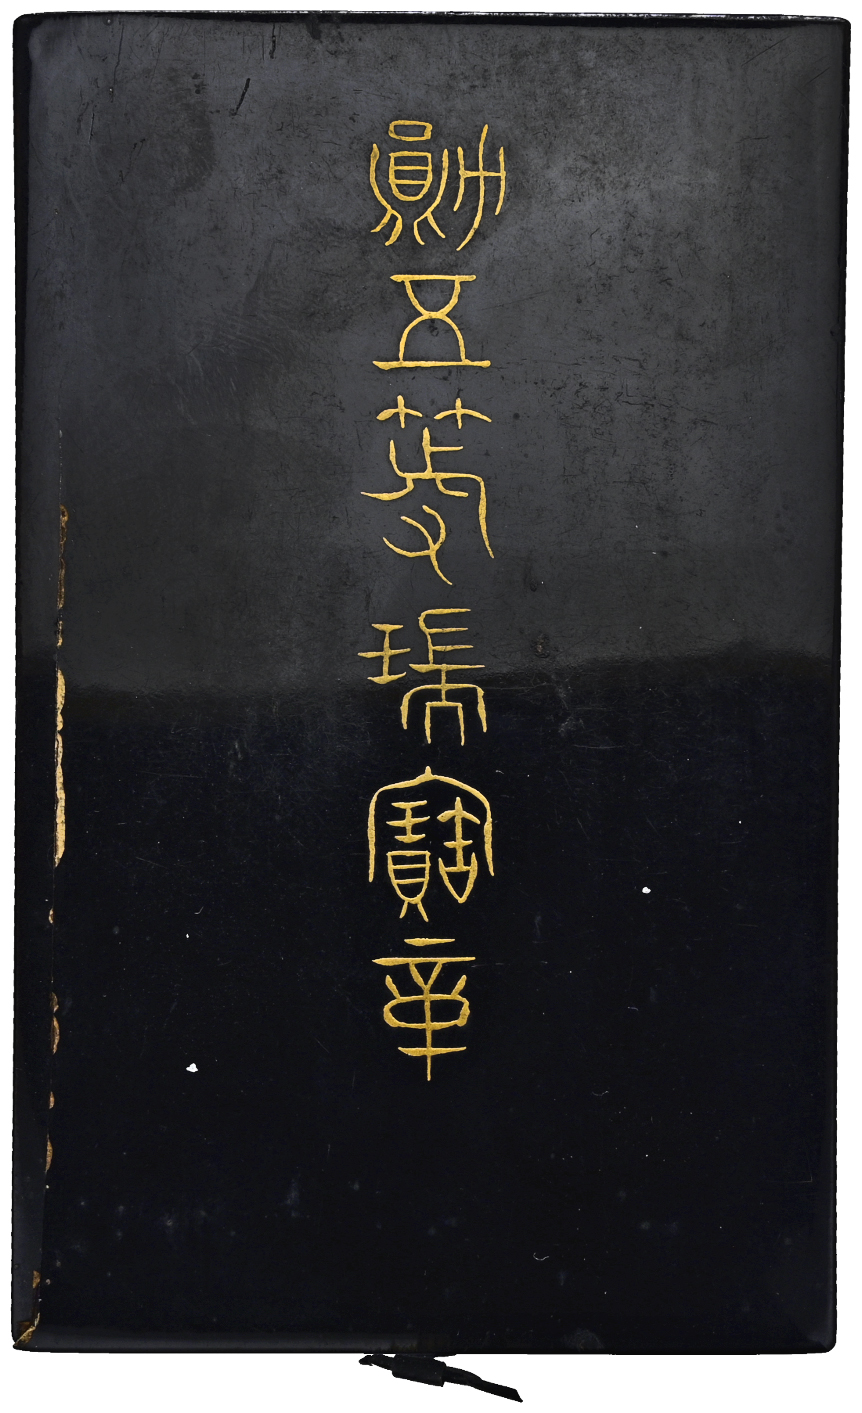 勛五等瑞寶章